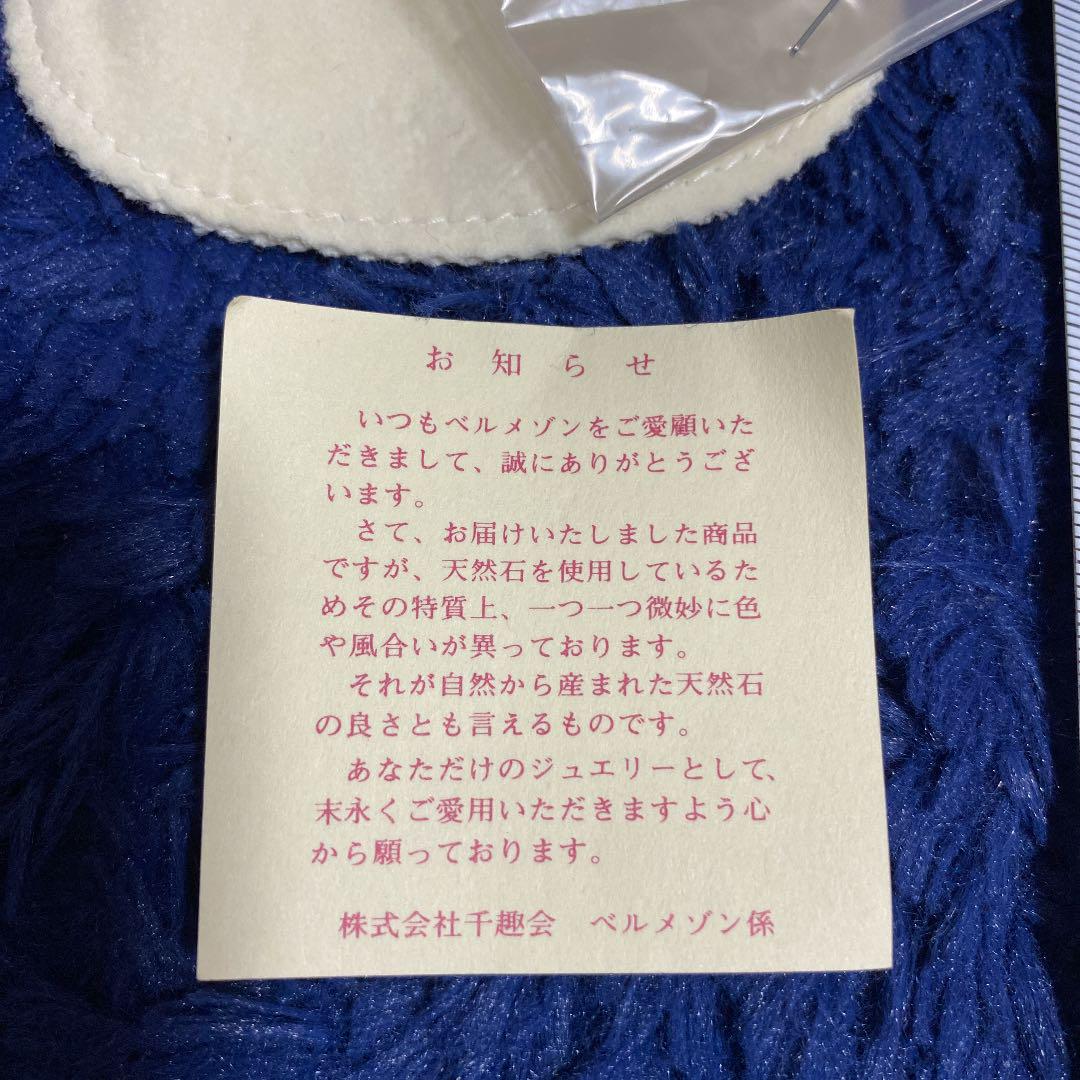 お知らせ
いつもベルメゾンをご愛顧いた
だきまして、誠にありがとうござ
います。
さて、お届けいたしました商品
ですが、天然石を使用しているた
めその特質上、一つ一つ微妙に色
や風合いが異っております。
それが自然から産まれた天然石
の良さとも言えるものです。
あなただけのジュエリーとして、
末永くご愛用いただきますよう心
から願っております。
株式会社千趣会　ベルメゾン係